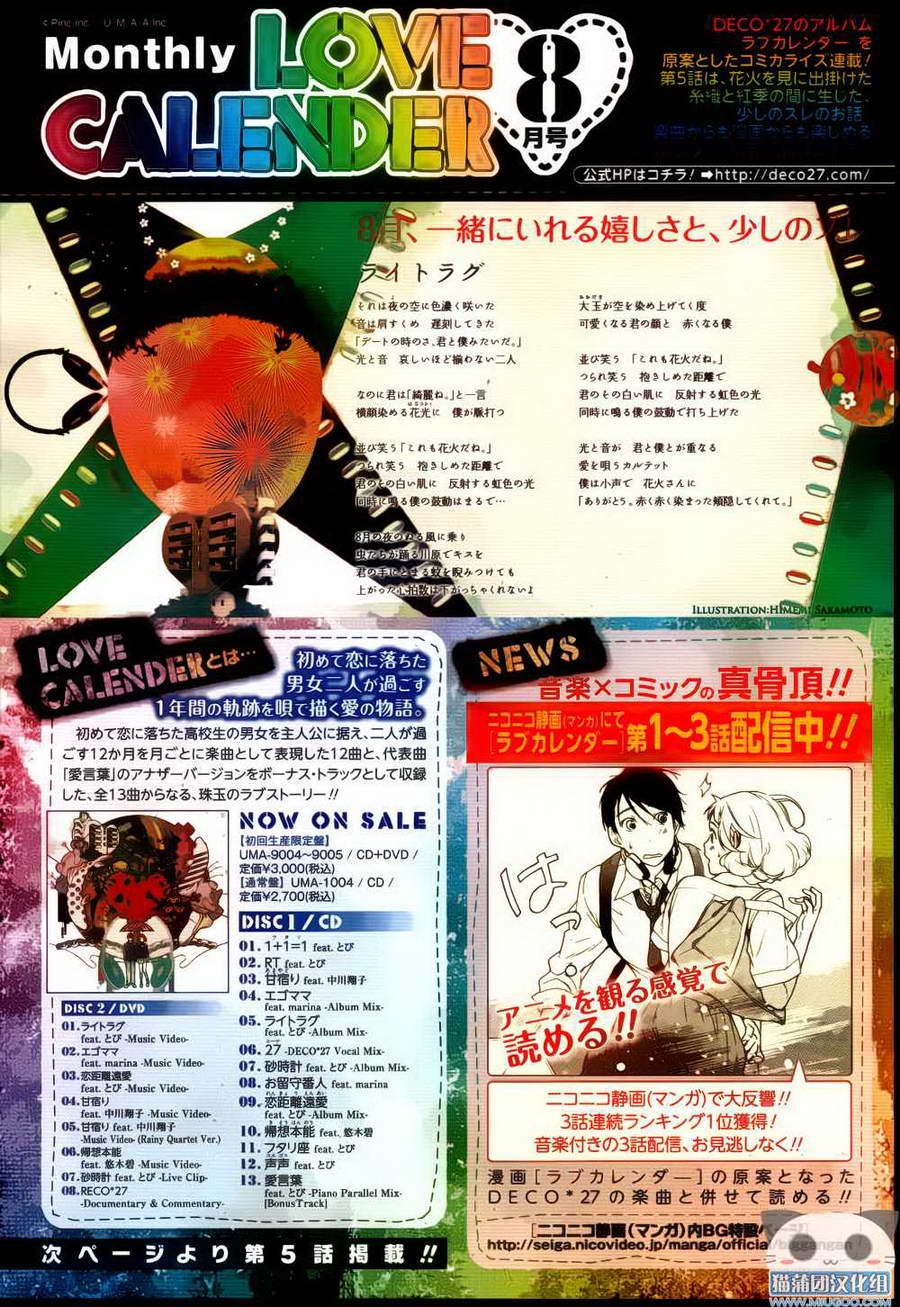 Monthly LOVE
CALENDER
8
月号
DECO*27のアルバム
ラブカレンダー を
原案としたコミカライズ連載!
第5話は、花火を見に出掛けた
糸織と紅季の間に生じた、
少しのズレのお話
公式HPはコチラ! ➡http://deco27.com/
8月、一緒にいれる嬉しさと、少しのズレ
ライトラグ
それは夜の空に色濃く咲いた
音は肩すくめ 遅刻してきた
「デートの時のさ、君と僕みたいだ。」
光と音 哀しいほど揃わない二人
なのに君は「綺麗ね。」と一言
横顔染める花光に 僕が脈打つ
並び笑う「これも花火だね。」
つられ笑う 抱きしめた距離で
君のその白い肌に 反射する虹色の光
同時に鳴る僕の鼓動はまるで…
8月の夜のぬる風に乗り
虫たちが踊る川原でキスを
君の手にとまる蚊を睨みつけても
上がった心拍数は下がっちゃくれないよ
大玉が空を染め上げてく度
可愛くなる君の顔と 赤くなる僕
並び笑う 「これも花火だね。」
つられ笑う 抱きしめた距離で
君のその白い肌に 反射する虹色の光
同時に鳴る僕の鼓動で打ち上げた
光と音が 君と僕とが重なる
愛を唄うカルテット
僕は小声で 花火さんに
「ありがとう。赤く赤く染まった頬隠してくれて。」
ILLUSTRATION:HIMEMI SAKAMOTO
LOVE
CALENDERとは…
初めて恋に落ちた
男女二人が過ごす
1年間の軌跡を唄で描く愛の物語。
初めて恋に落ちた高校生の男女を主人公に据え、二人が過
ごす12か月を月ごとに楽曲として表現した12曲と、代表曲
「愛言葉」のアナザーバージョンをボーナス・トラックとして収録
した、全13曲からなる、珠玉のラブストーリー!!
NOW ON SALE
【初回生産限定盤】
UMA-9004~9005 / CD+DVD /
定価¥3,000(税込)
【通常盤】 UMA-1004 / CD /
定価¥2,700(税込)
DISC 1 / CD
01. 1+1=1 feat. とぴ
02. RT feat. とぴ
03. 甘宿り feat. 中川翔子
04. エゴママ
feat. marina -Album Mix-
05. ライトラグ
feat. とぴ -Album Mix-
06. 27 -DECO*27 Vocal Mix-
07. 砂時計 feat. とぴ -Album Mix-
08. お留守番人 feat. marina
09. 恋距離遠愛
feat. とぴ -Album Mix-
10. 帰想本能 feat. 悠木碧
11. フタリ座 feat. とぴ
12. 声声 feat. とぴ
13. 愛言葉
feat. とぴ -Piano Parallel Mix-
[BonusTrack]
DISC 2 / DVD
01.ライトラグ
feat. とぴ -Music Video-
02.エゴママ
feat. marina -Music Video-
03.恋距離遠愛
feat. とぴ -Music Video-
04.甘宿り
feat. 中川翔子 -Music Video-
05.甘宿り feat. 中川翔子
-Music Video- (Rainy Quartet Ver.)
06.帰想本能
feat. 悠木碧 -Music Video-
07.砂時計 feat. とぴ -Live Clip-
08.RECO*27
-Documentary & Commentary-
次ページより第5話掲載!!
NEWS
音楽×コミックの真骨頂!!
ニコニコ静画(マンガ)にて
[ラブカレンダー]第1~3話配信中!!
はっ
アニメを観る感覚で
読める!!
ニコニコ静画(マンガ)で大反響!!
3話連続ランキング1位獲得!
音楽付きの3話配信、お見逃しなく!!
漫画[ラブカレンダー]の原案となった
DECO*27の楽曲と併せて読める!!
[ニコニコ静画(マンガ)内BG特設ページ]
http://seiga.nicovideo.jp/manga/official/biggangan
猫蒲团汉化组
WWW.MIUGOO.COM